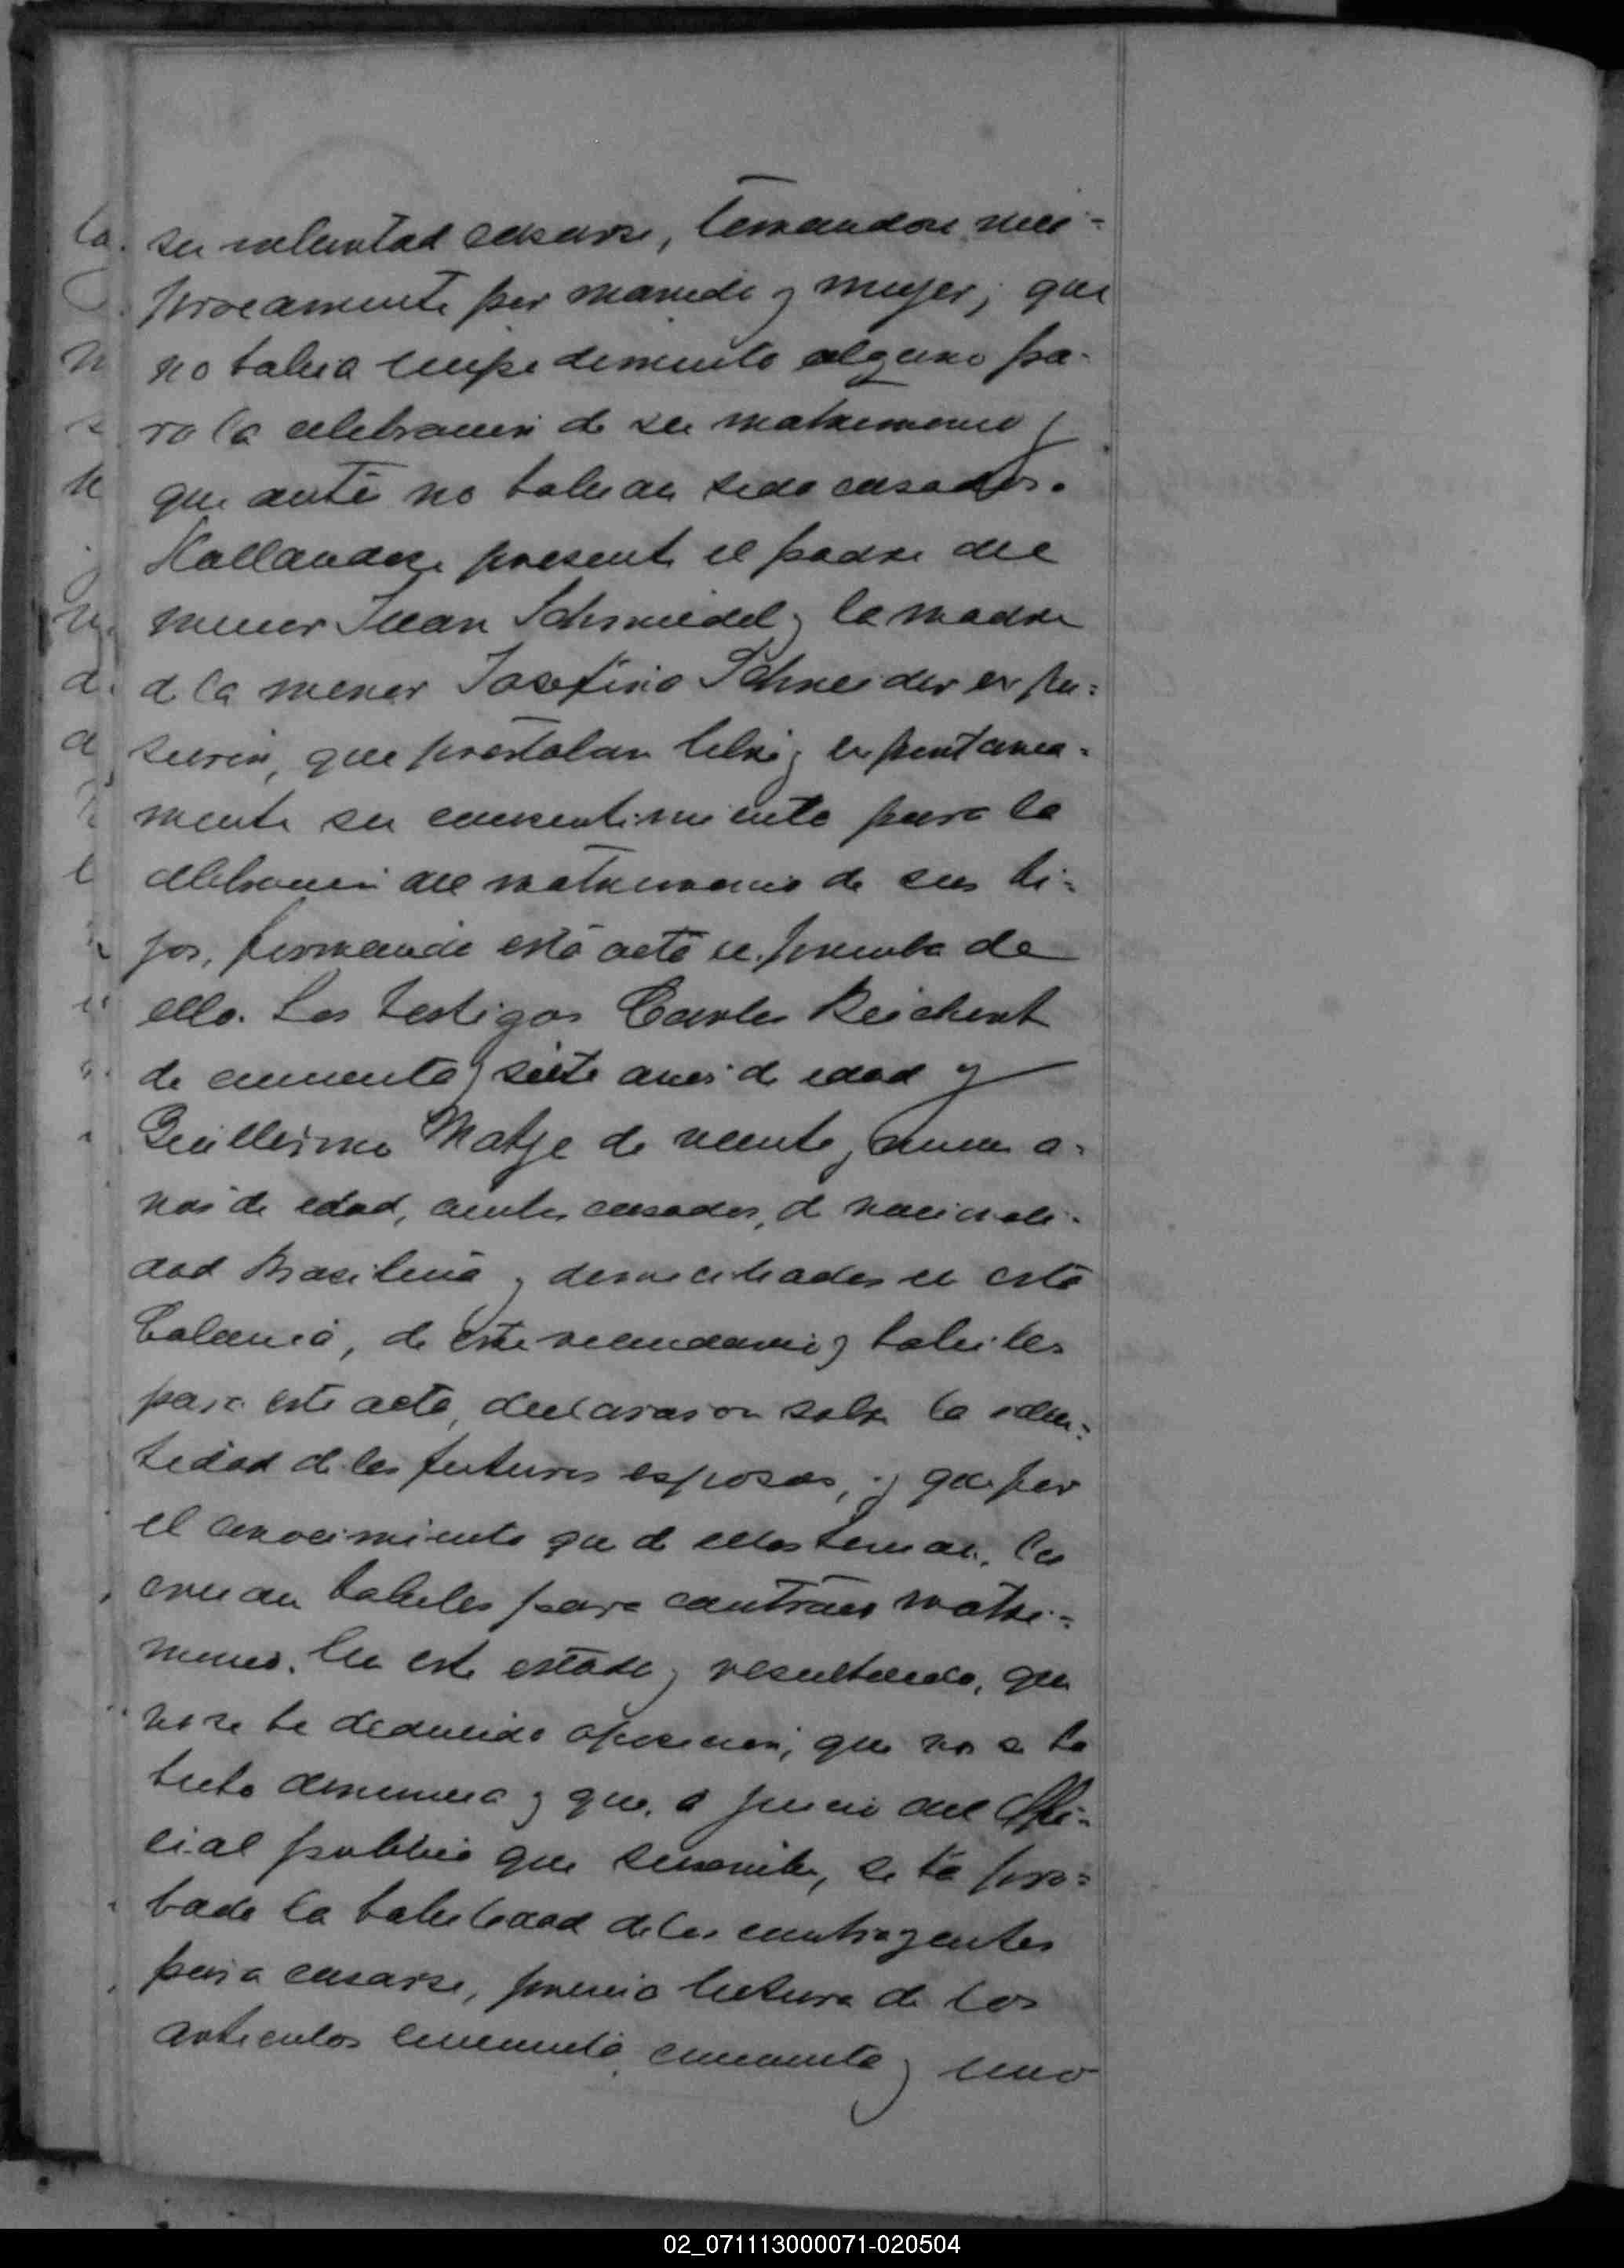 su voluntad casarse, tomandose reci-
procamente por marido y mujer; que
no habia impedimento alguno pa-
ra la celebracion de su matrimonio y
que ante no habian sido casados.
Hallandose presente el padre del
menor Juan Schmiedel y la madre
de la menor Josefina Schneider expu-
sieron, que prestaban libre y expontanea-
mente su consentimiento para la
celebracion del matrimonio de sus hi-
jos, firmando esta acta en prueba de
ello. Los testigos Carlos Reichert
de cincuenta y siete años de edad y
Guillermo Matje de veinte y nueve a-
ños de edad, ambos casados, de nacionali-
dad Brasilena y domiciliados en esta
Colonia, de este vecindario y habiles
para este acto, declararon sobre la iden-
tidad de los futuros esposos, y que por
el conocimiento que de ellos tenian, los
creian habiles para contraer matri-
monio. En este estado y resultando, que
no se ha deducido oposicion, que no se ha
hecho denuncia y que, a juicio del Ofi-
cial publico que suscribe, se ha pro-
bado la habilidad de los contrayentes
para casarse, previa lectura de los
articulos cincuenta, cincuenta y uno
02_071113000071-020504